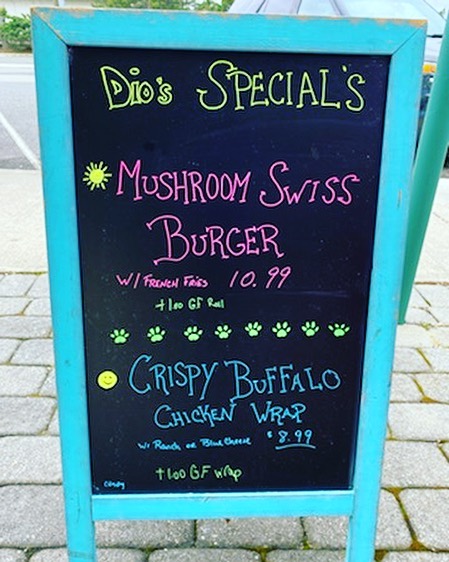 Dio's SPECIAL'S
MUSHROOM SWISS
BURGER
W/ FRENCH FRIES 10.99
+1.00 GF Roll
CRISPY BUFFALO
CHICKEN WRAP
W/ Ranch or Blue Cheese $8.99
+1.00 GF Wrap